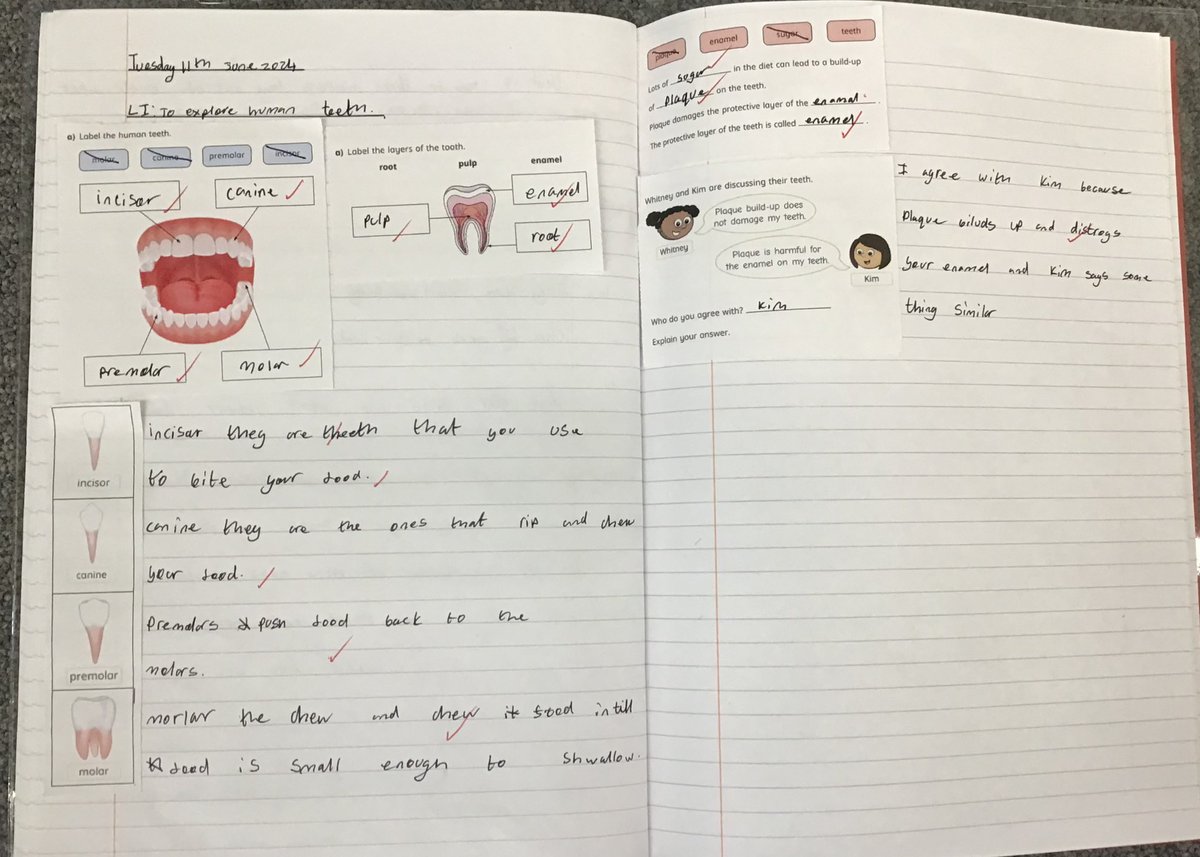 Tuesday 11th June 2024
LI: To explore human teeth.
a) Label the human teeth.
molar canine premolar incisor
incisor canine
premolar molar
a) Label the layers of the tooth.
root pulp enamel
enamel
pulp
root
incisor
incisar they are theeth that you use
to bite your food.
canine
canine they are the ones that rip and chew
your food.
premolar
Premolars push food back to the
molars.
molar
morlar the chew and chew it food intill
food is small enough to shwallow.
plaque enamel sugar teeth
Lots of sugar in the diet can lead to a build-up
of plaque on the teeth.
Plaque damages the protective layer of the enamal.
The protective layer of the teeth is called enamel.
Whitney and Kim are discussing their teeth.
Plaque build-up does
not damage my teeth.
Whitney
Plaque is harmful for
the enamel on my teeth.
Kim
Who do you agree with? Kim
Explain your answer.
I agree with Kim because
Plaque biluds up and distroys
your enamel and Kim says some
thing similar